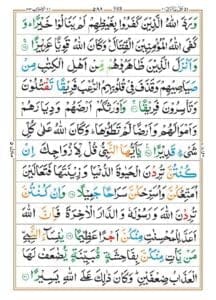 وَرَدَّ اللّٰهُ الَّذِيْنَ كَفَرُوْا بِغَيْظِهِمْ لَمْ يَنَالُوْا خَيْرًا ؕ وَ
كَفَى اللّٰهُ الْمُؤْمِنِيْنَ الْقِتَالَ ؕ وَكَانَ اللّٰهُ قَوِيًّا عَزِيْزًا
وَاَنْزَلَ الَّذِيْنَ ظَاهَرُوْهُمْ مِّنْ اَهْلِ الْكِتٰبِ مِنْ
صَيَاصِيْهِمْ وَقَذَفَ فِيْ قُلُوْبِهِمُ الرُّعْبَ فَرِيْقًا تَقْتُلُوْنَ
وَاَمْوَالَهُمْ وَاَرْضًا لَّمْ تَطَـُٔوْهَا ؕ وَكَانَ اللّٰهُ عَلٰى
يٰۤاَيُّهَا النَّبِيُّ قُلْ لِّاَزْوَاجِكَ اِنْ
كُنْتُنَّ تُرِدْنَ الْحَيٰوةَ الدُّنْيَا وَزِيْنَتَهَا فَتَعَالَيْنَ
اُمَتِّعْكُنَّ وَاُسَرِّحْكُنَّ سَرَاحًا جَمِيْلًا وَاِنْ كُنْتُنَّ
تُرِدْنَ اللّٰهَ وَرَسُوْلَهٗ وَالدَّارَ الْاٰخِرَةَ فَاِنَّ اللّٰهَ
اَعَدَّ لِلْمُحْسِنٰتِ مِنْكُنَّ اَجْرًا عَظِيْمًا يٰنِسَآءَ النَّبِيِّ
مَنْ يَّاْتِ مِنْكُنَّ بِفَاحِشَةٍ مُّبَيِّنَةٍ يُّضٰعَفْ لَهَا
الْعَذَابُ ضِعْفَيْنِ ؕ وَكَانَ ذٰلِكَ عَلَى اللّٰهِ يَسِيْرًا